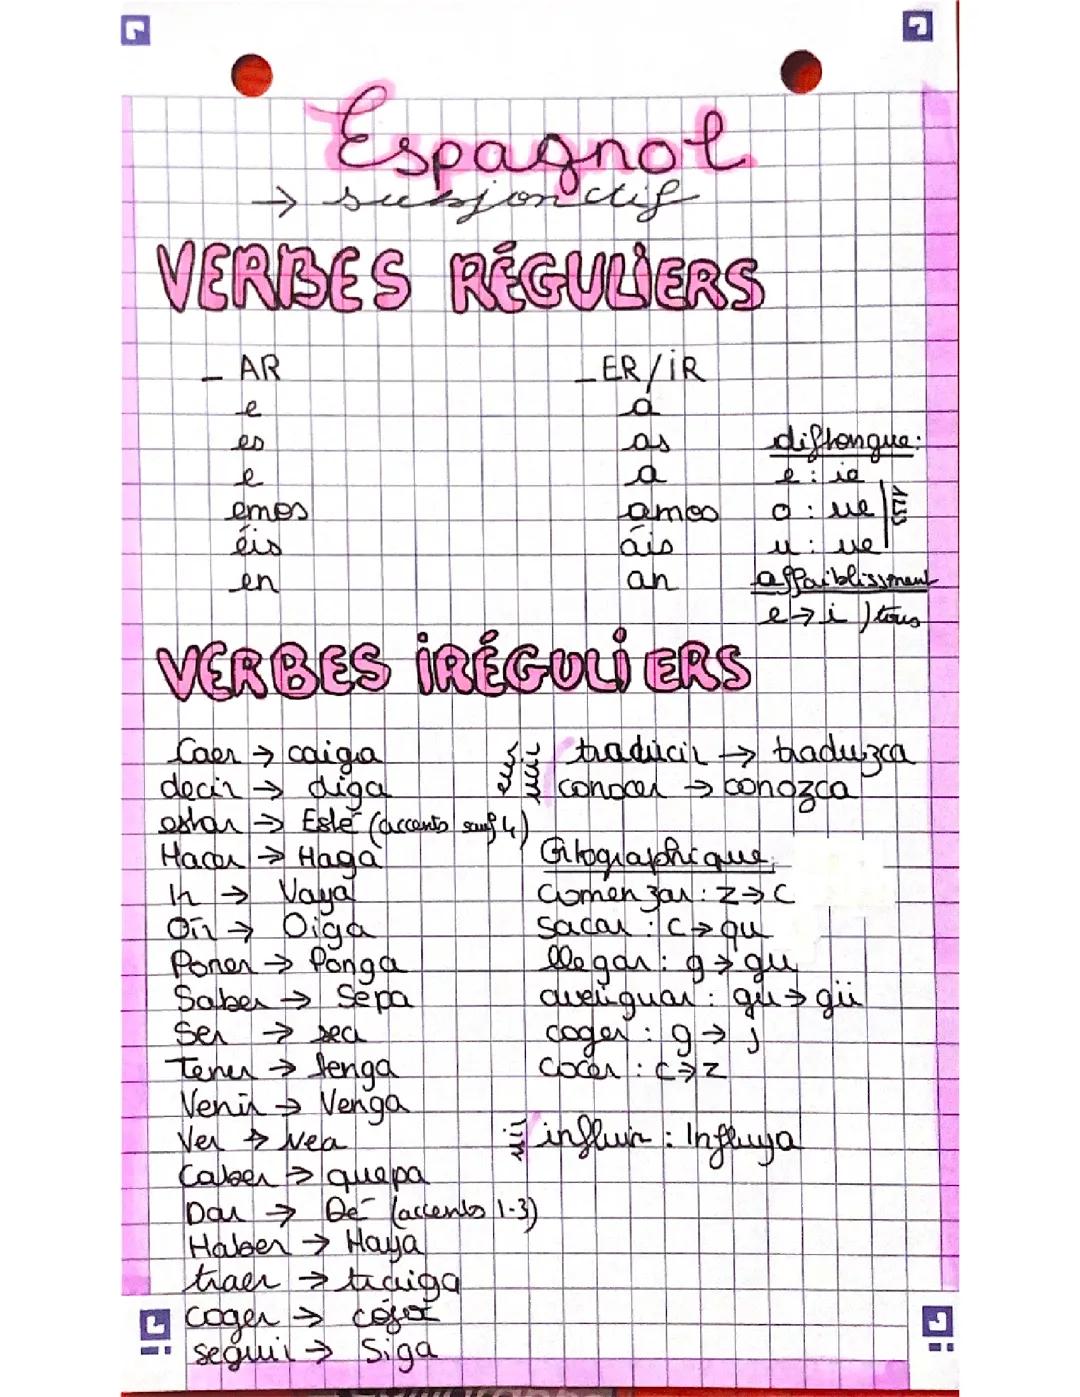 Espagnol
→ subjonctif
VERBES RÉGULIERS
_ AR
e
es
e
emos
éis
en
_ER/iR
a
as
a
amos
áis
an
diftongue:
e : ie
o : ue
u : ue
affaiblissment
e→i ) tous
VERBES iRÉGULiERS
Caer → caiga
decir → diga
estar → Esté (accents sauf 4)
Hacer → Haga
Ir → Vaya
Oír → Oiga
Poner → Ponga
Saber → Sepa
Ser → sea
Tener → tenga
Venir → Venga
Ver → Vea
Caber → quepa
Dar → Dé (accents 1-3)
Haber → Haya
traer → traiga
coger → coja
seguir → Siga
traducir → traduzca
conocer → conozca
Comenzar : z→c
Sacar : c→qu
llegar : g→gu
averiguar : gu→gü
coger : g→j
Cocer : c→z
influir : Influya